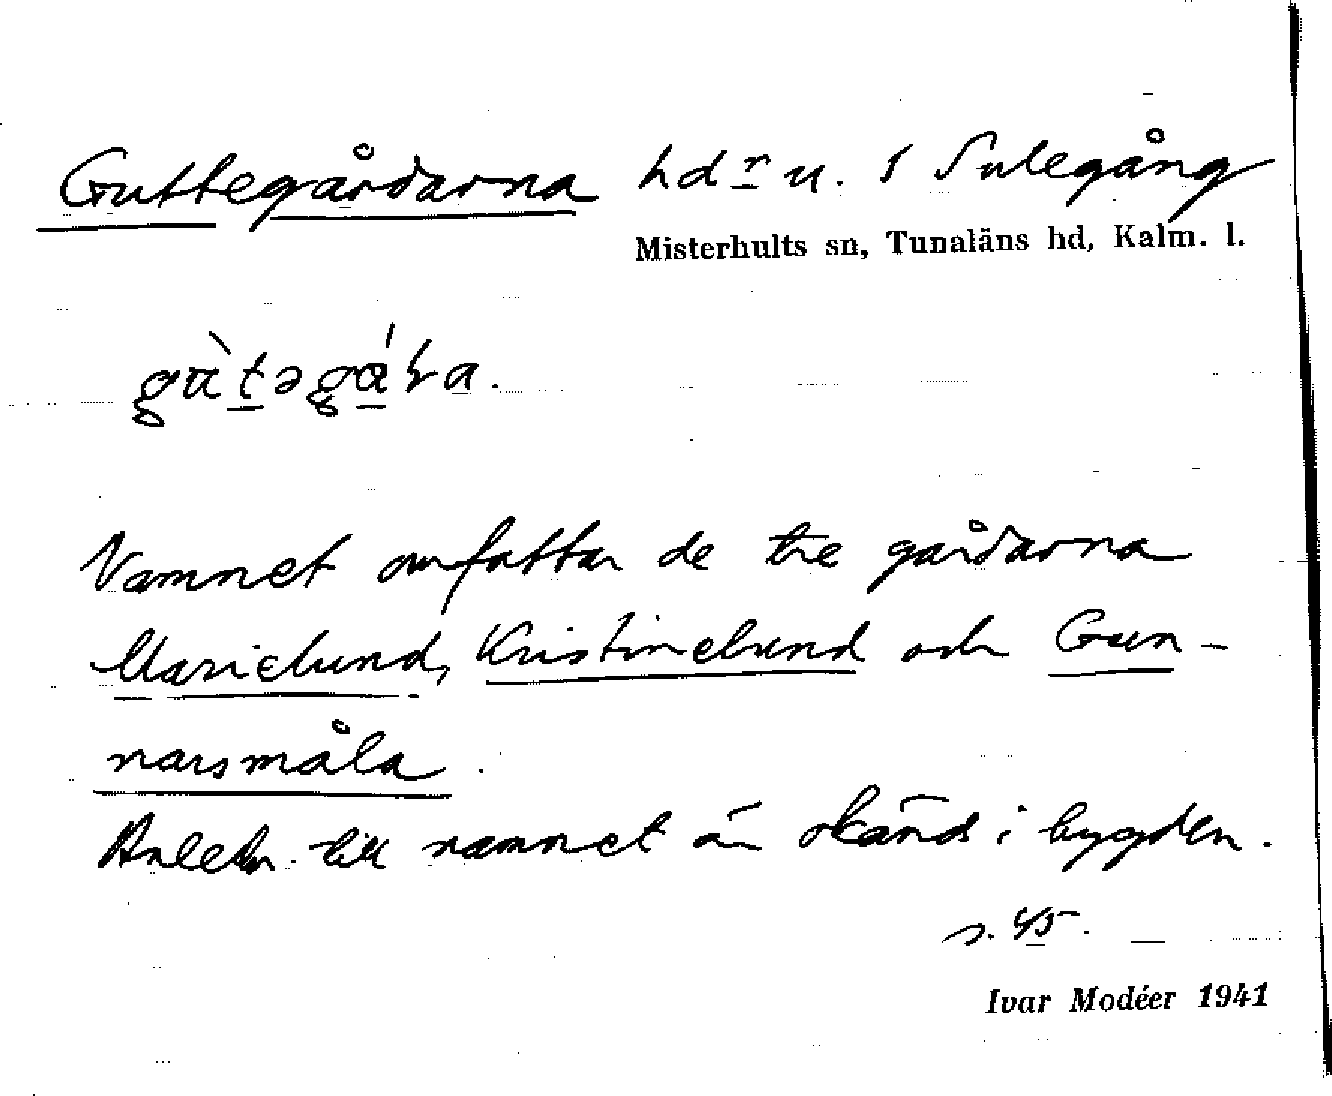 Guttegårdarna hdr u. 1 Sulegång
Misterhults sn, Tunaläns hd, Kalm. l.
Namnet omfattar de tre gårdarna
Marielund, Kristinelund och Gun-
narsmåla.
Anledn. till namnet är okänd i bygden.
s. 45.
Ivar Modéer 1941